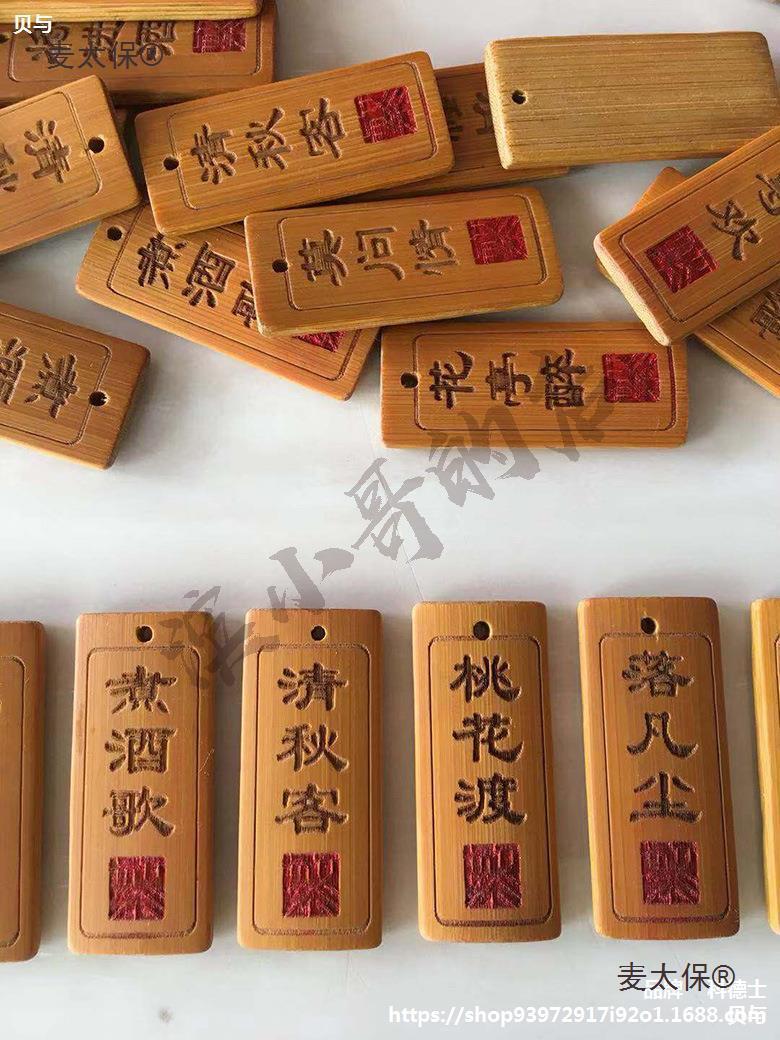 贝与
麦太保®
煮酒
清
清秋客
莫问情
煮酒歌
煮
花亭醉
滨小哥的店
煮酒歌
清秋客
桃花渡
落凡尘
麦太保®
品牌 科德士
https://shop93972917i92o1.1688.com
贝与